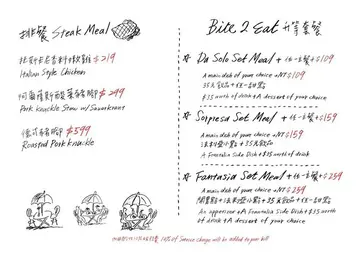 排餐 Steak Meal
托斯卡尼香料嫩雞 $219
Italian Style Chicken
酸菜豬腳 $299
Pork Knuckle Stew w/ Sauerkraut
德式豬腳 $599
Roasted Pork Knuckle
Bite 2 Eat 升等套餐
Da Solo Set Meal + 任一主餐 + $109
A main dish of your choice + NT$109
35元飲品 + 任一甜點
$35 worth of drink + A dessert of your choice
Sorpresa Set Meal + 任一主餐 + $159
A main dish of your choice + NT$159
派對小點 + 35元飲品
A Smantalia Side Dish + $35 worth of drink
Fantasia Set Meal + 任一主餐 + $259
A main dish of your choice + NT$259
開胃點 + 派對小點 + 35元飲品 + 任一甜點
An appetizer + A Smantalia Side Dish + $35 worth of drink + A dessert of your choice
10% of Service charge will be added to your bill